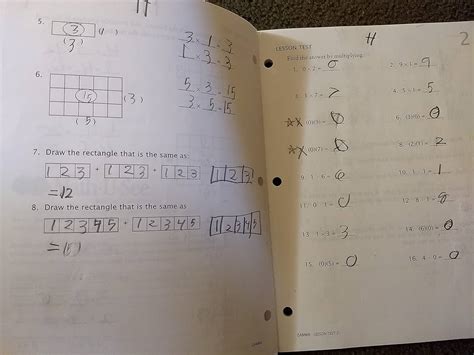 5. (3) ( )
(3)
3 · 1 = 3
1 · 3 = 3
6.
(15) (3)
(5)
5 · 3 = 15
3 · 5 = 15
7. Draw the rectangle that is the same as:
1 2 3 · 1 2 3 · 1 2 3 1 2 3
8. Draw the rectangle that is the same as
1 2 3 4 5 · 1 2 3 4 5 1 2 3 4 5
LESSON TEST
H 2
Find the answer by multiplying.
1. 0 × 2 = 0
2. 9 × 1 = 9
5
7
(0)(3) = 0
6. (3)(0) = 0
(0)(7) = 0
8. (2)(1) = 2
9. 1 · 6 = 6
10. 1 · 1 = 1
11. 0 · 1 = 0
12. 8 · 1 = 8
13. 1 · 3 = 3
14. (6)(0) = 0
15. (0)(5) = 0
16. 4 · 0 = 0